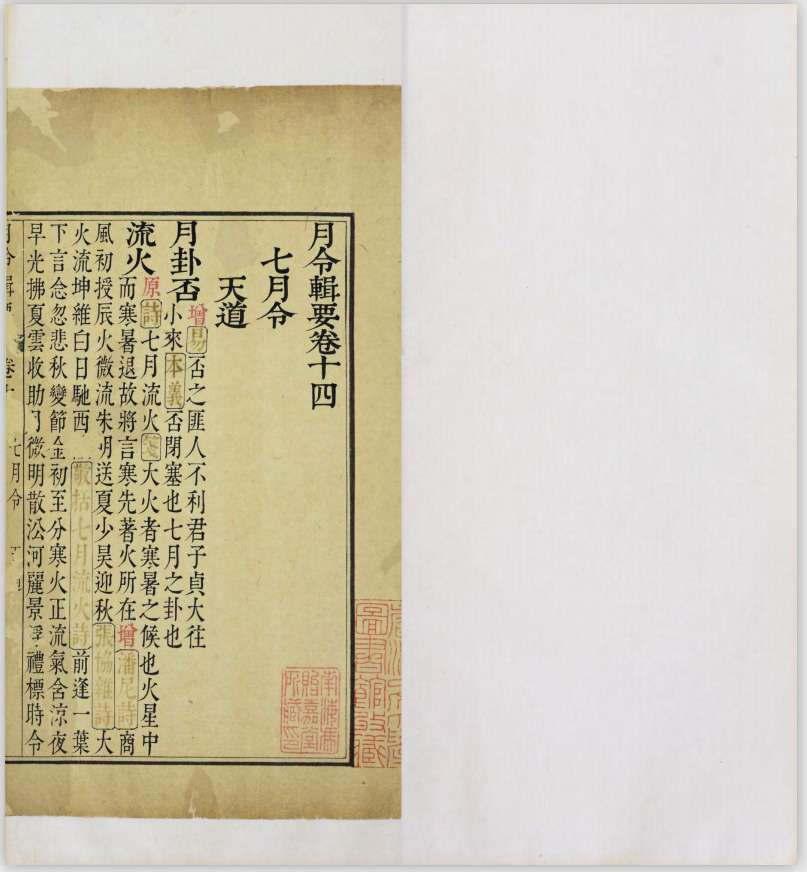 月令輯要卷十四
七月令
天道
月卦否
增易否之匪人不利君子貞大往
小來本義否閉塞也七月之卦也
流火
原詩七月流火箋大火者寒暑之候也火星中
而寒暑退故將言寒先著火所在增潘尼詩商
風初授辰火微流朱明送夏少昊迎秋張協雜詩大
火流坤維白日馳西敬括七月流火詩前逢一葉
下言念忽悲秋變節金初至分寒火正流氣含涼夜
早光拂夏雲收助月微明散沿河麗景浮禮標時令
月令輯 卷 七月令
圖書館